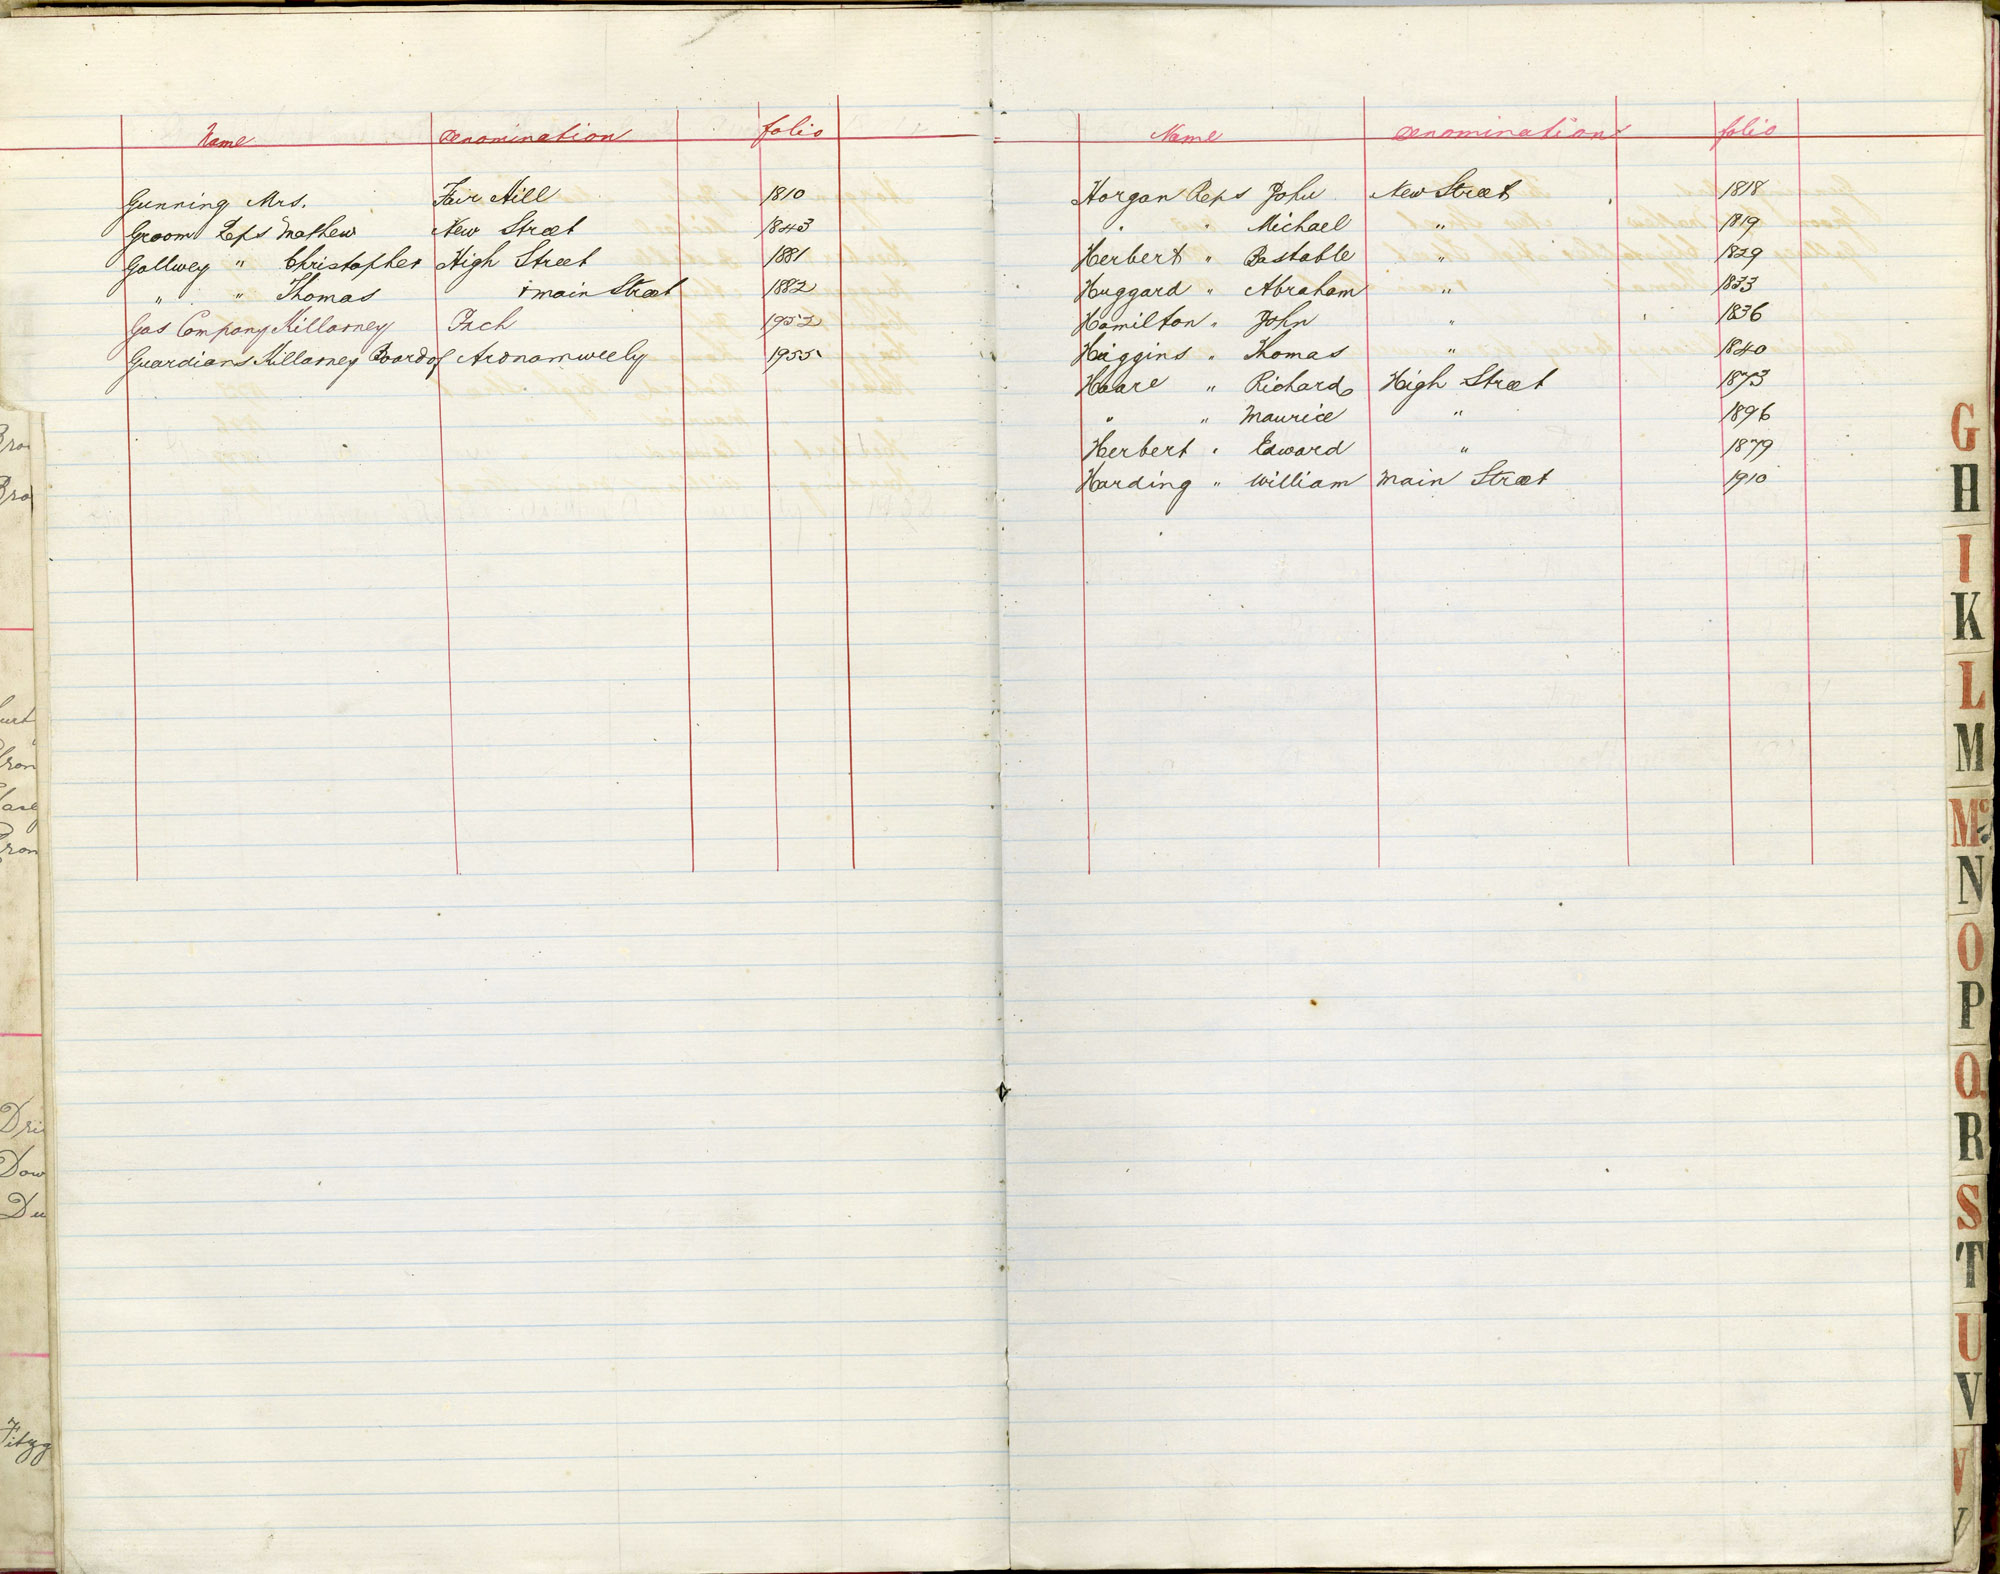 Name Denomination folio
Gunning Mrs. Fair Hill 1810
Groom Reps Mathew New Street 1843
Gallwey " Christopher High Street 1881
" " Thomas + main Street 1882
Gas Company Killarney Inch 1952
Guardians Killarney Board of Ardnamweely 1955
Name Denomination folio
Horgan Reps John New Street 1818
" " Michael " 1819
Herbert " Bastable " 1829
Huggard " Abraham " 1833
Hamilton " John " 1836
Higgins " Thomas " 1840
Hoare " Richard High Street 1873
" " Maurice " 1896
Herbert " Edward " 1879
Harding " William Main Street 1910
Bro
Bro
Dri
Dow
Du
Fitzg
G
H
I
K
L
M
Mc
N
O
P
Q
R
S
T
U
V